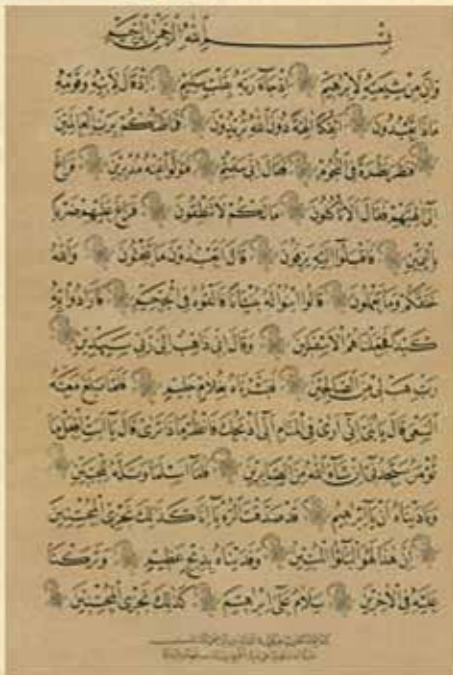 بسم الله الرحمن الرحيم
وان من شيعته لابرهيم اذ جاء ربه بقلب سليم اذ قال لابيه وقومه
ماذا تعبدون ائفكا آلهة دون الله تريدون فما ظنكم برب العالمين
فنظر نظرة في النجوم فقال اني سقيم فتولوا عنه مدبرين فراغ
الى آلهتهم فقال الا تأكلون ما لكم لا تنطقون فراغ عليهم ضربا
باليمين فاقبلوا اليه يزفون قال اتعبدون ما تنحتون والله
خلقكم وما تعملون قالوا ابنوا له بنيانا فالقوه في الجحيم فارادوا به
كيدا فجعلناهم الاسفلين وقال اني ذاهب الى ربي سيهدين
رب هب لي من الصالحين فبشرناه بغلام حليم فلما بلغ معه
السعي قال يا بني اني ارى في المنام اني اذبحك فانظر ماذا ترى قال يا ابت افعل ما
تؤمر ستجدني ان شاء الله من الصابرين فلما اسلما وتله للجبين
وناديناه ان يا ابرهيم قد صدقت الرؤيا انا كذلك نجزي المحسنين
ان هذا لهو البلؤا المبين وفديناه بذبح عظيم وتركنا
عليه في الآخرين سلام على ابرهيم كذلك نجزي المحسنين